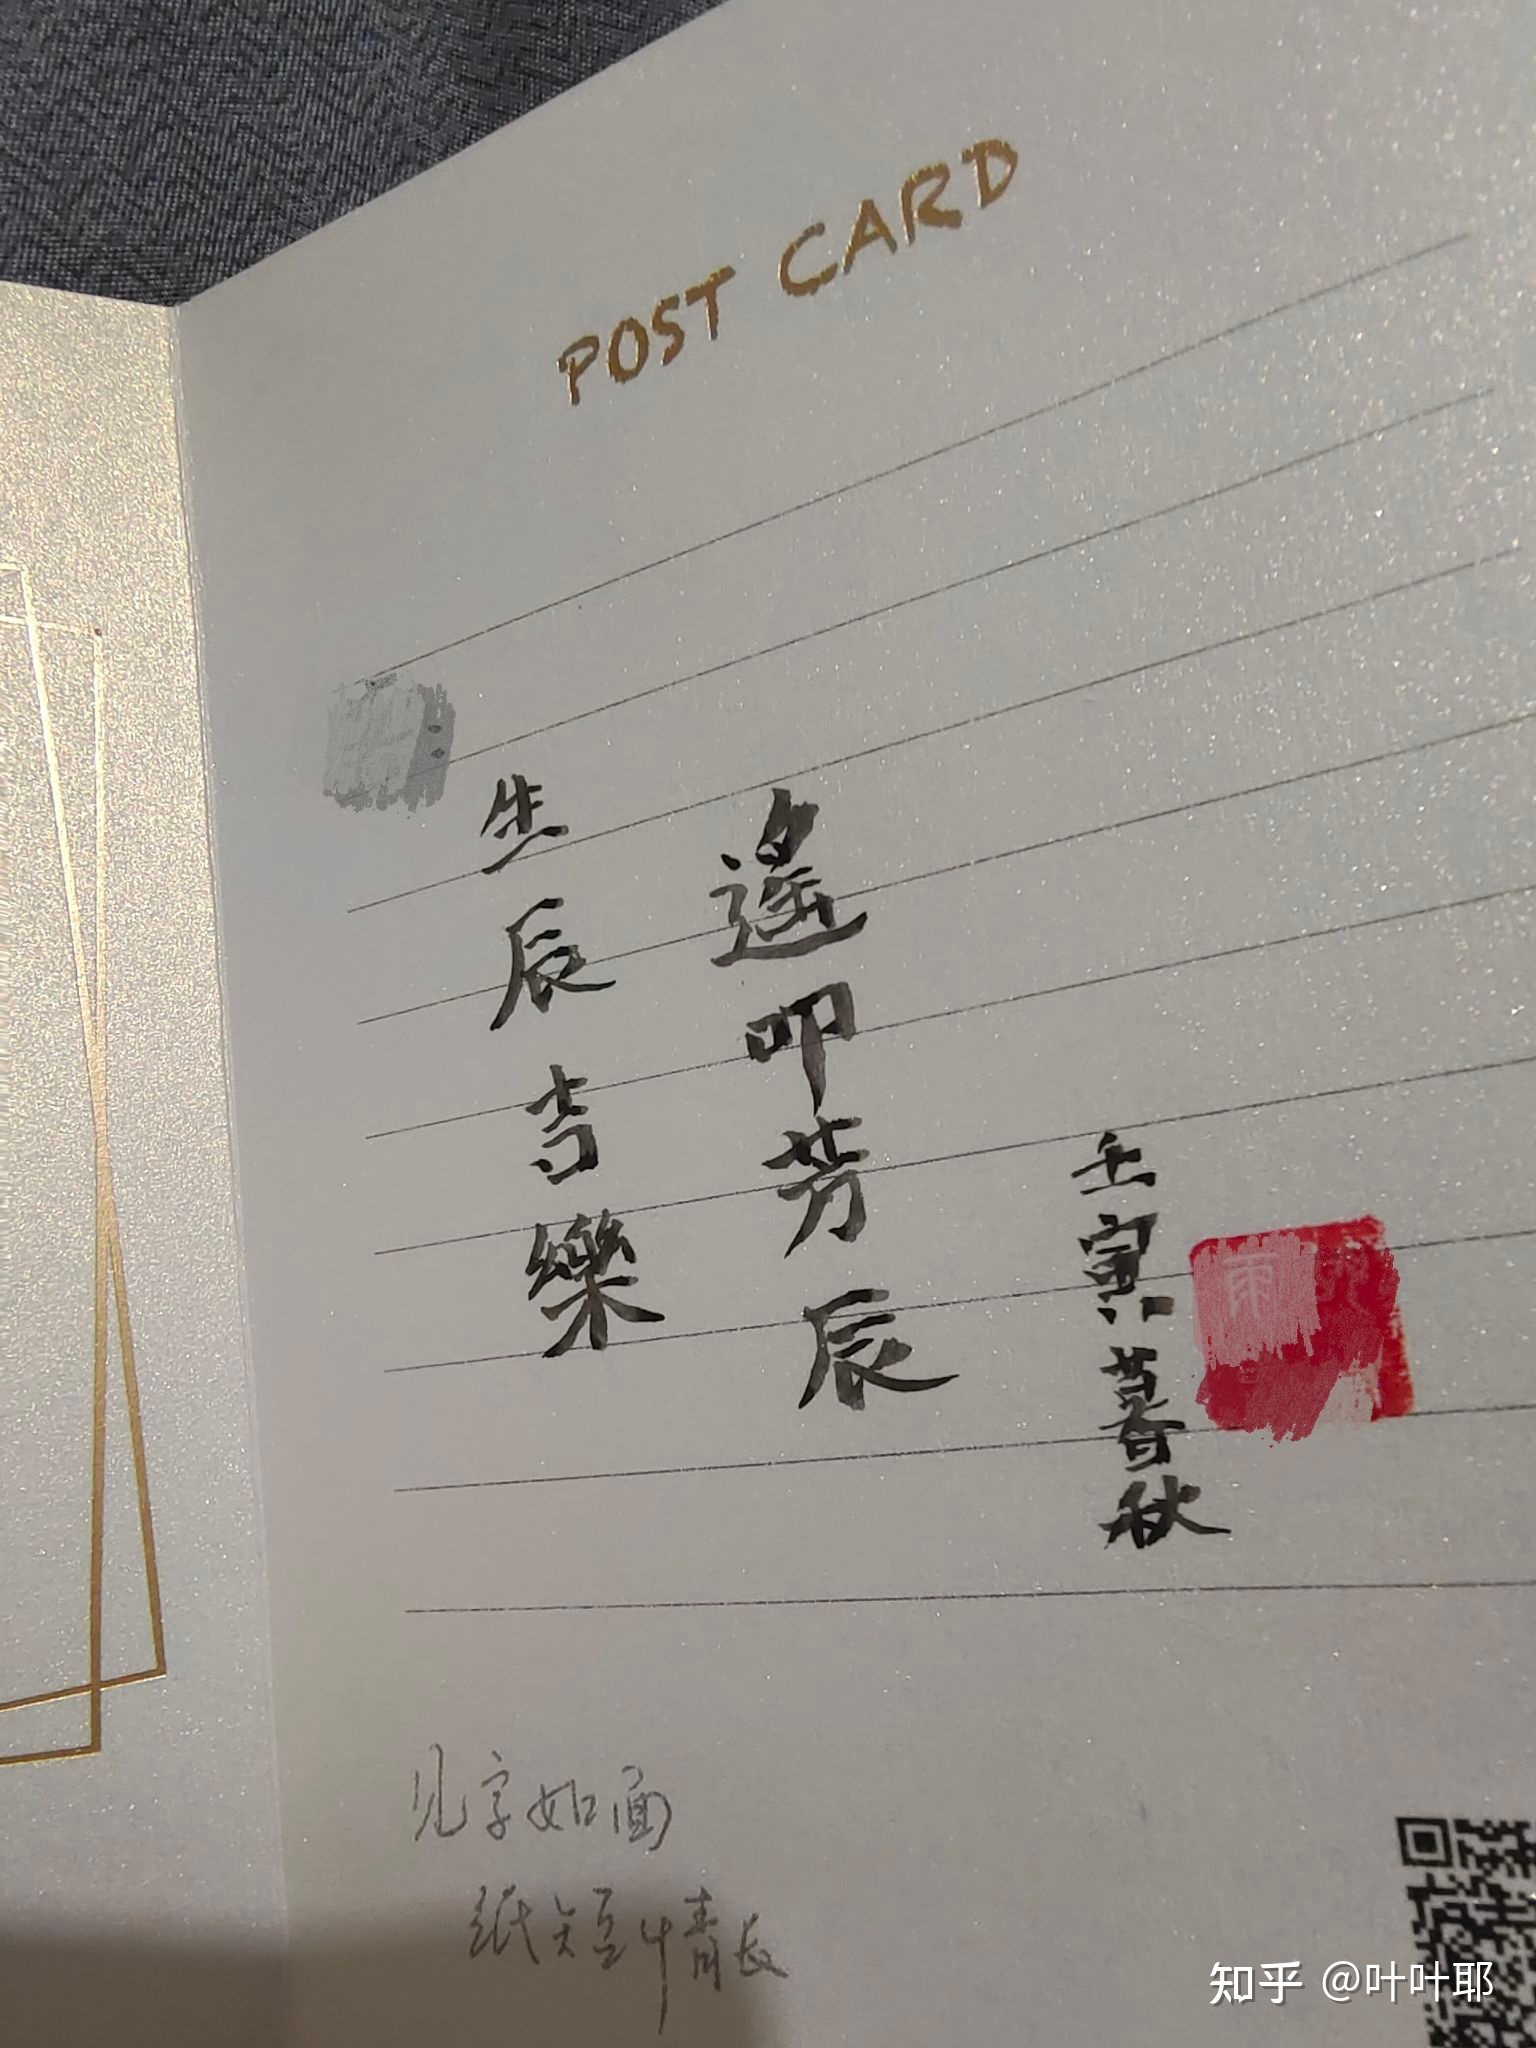 POST CARD
生辰吉樂
遙叩芳辰
壬寅暮秋
雨
见字如面
纸短情长
知乎 @叶叶耶